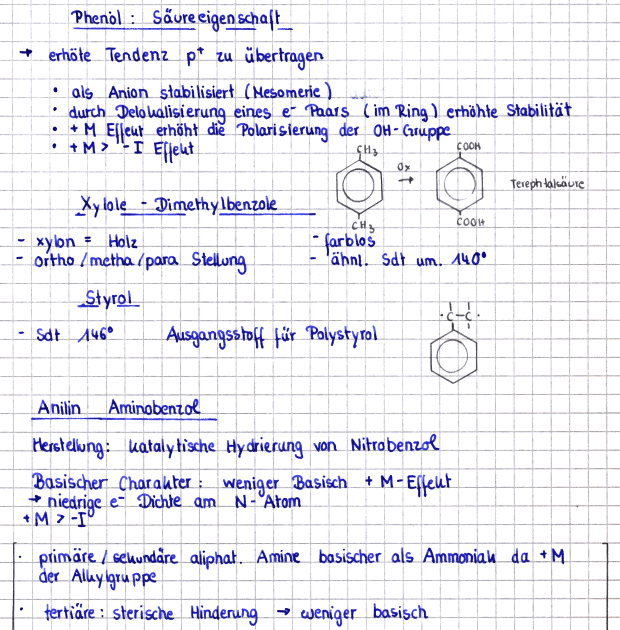 Phenol : Säureeigenschaft
→ erhöte Tendenz p⁺ zu übertragen
• als Anion stabilisiert (Mesomerie)
• durch Delokalisierung eines e⁻ Paars (im Ring) erhöhte Stabilität
• + M Effekt erhöht die Polarisierung der OH-Gruppe
• + M > - I Effekt
CH₃ Ox → COOH
Terephtalsäure
CH₃ COOH
Xylole - Dimethylbenzole
- xylon = Holz - farblos
- ortho/metha/para Stellung - ähnl. Sdt um. 140°
Styrol
- Sdt 146° Ausgangsstoff für Polystyrol
C-C
Anilin Aminobenzol
Herstellung: katalytische Hydrierung von Nitrobenzol
Basischer Charakter: weniger Basisch + M-Effekt
→ niedrige e⁻ Dichte am N-Atom
+M > -I
• primäre/sekundäre aliphat. Amine basischer als Ammoniak da +M
der Alkylgruppe
• tertiäre: sterische Hinderung → weniger basisch